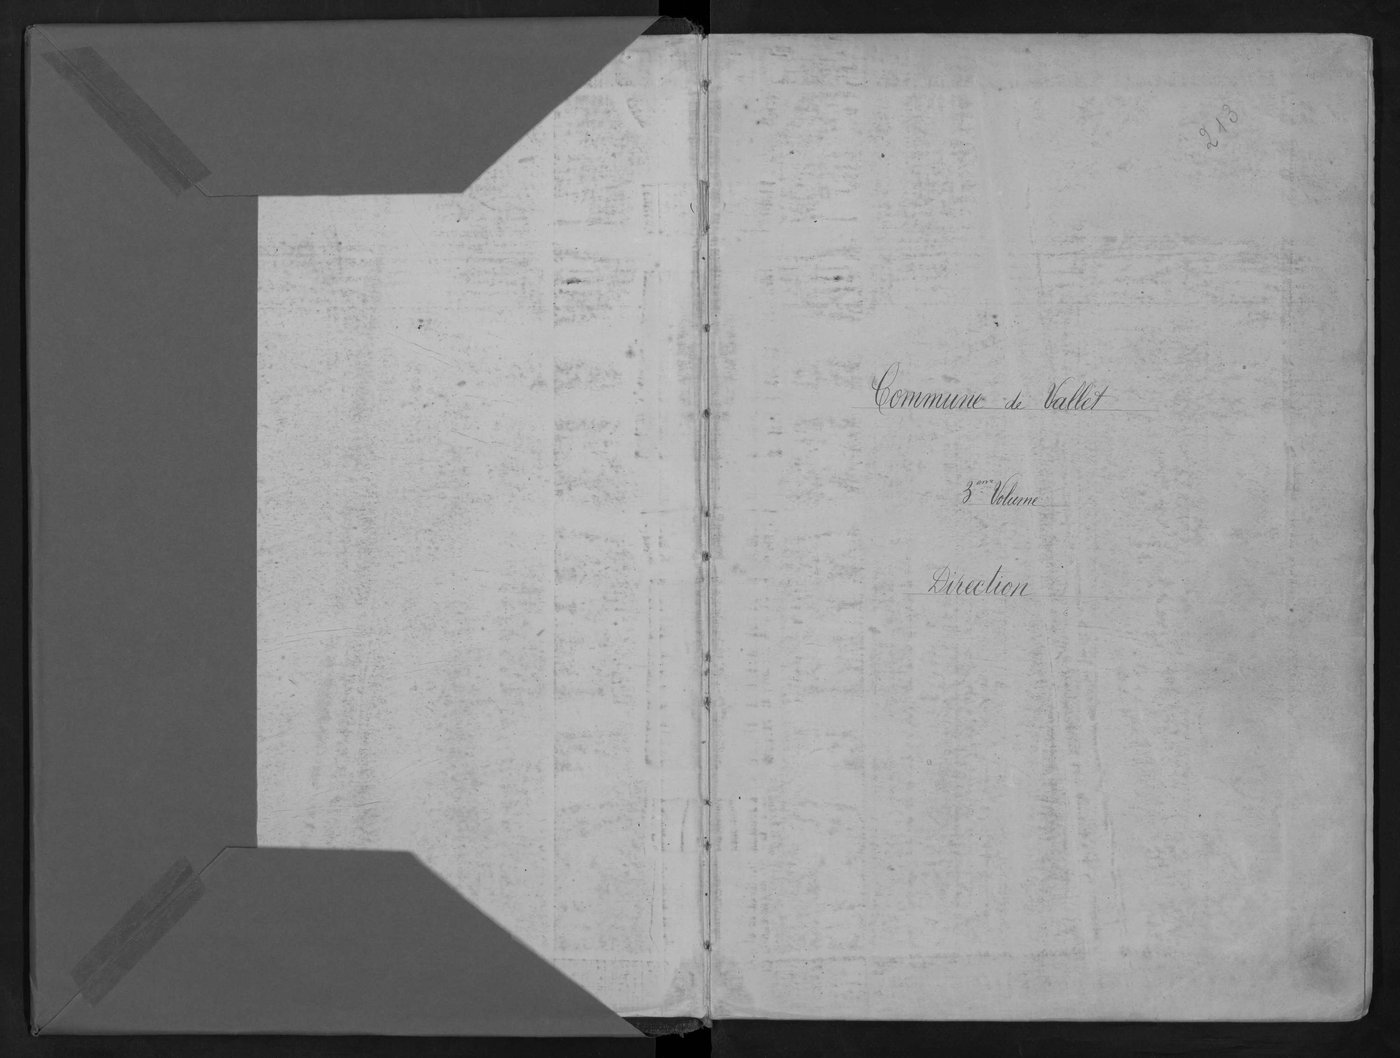 213
Commune de Vallet
3eme Volume
Direction